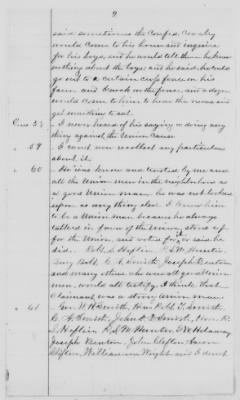 9
said sometimes the Confed. Cavalry
would come to his house and inquire
for his boys, and he would tell them he knew
nothing about the boys; and he said he would
go out to a certain cross fence on his
farm and knock on the fence, and a dozen
would come to him to hear the news and
get something to eat.
I never heard of his saying or doing any
thing against the Union Cause
59 I can't now recollect any particulars
about it.
60 He was known and trusted by me and
all the Union men in the neighborhood as
a good Union man. he was not looked
upon as any thing else. I knew him
to be a Union man because he always
talked in favor of the Union, stood up
for the Union, and voted for it he said he
did. Robt. J. Heflin, R. S. W. Hunter
Robt. C. A. Smith, Joseph Benton
and many others who were all good Union
men, would all testify I think that
Claimant was a strong Union man.
61 Smith, Robt. T. Smith
C. A. Smith, John C. D. Smith, R.
J. Heflin R. S. W. Hunter,
Joseph Benton, John Clifton, Aaron
Clifton, William Wright and I don't